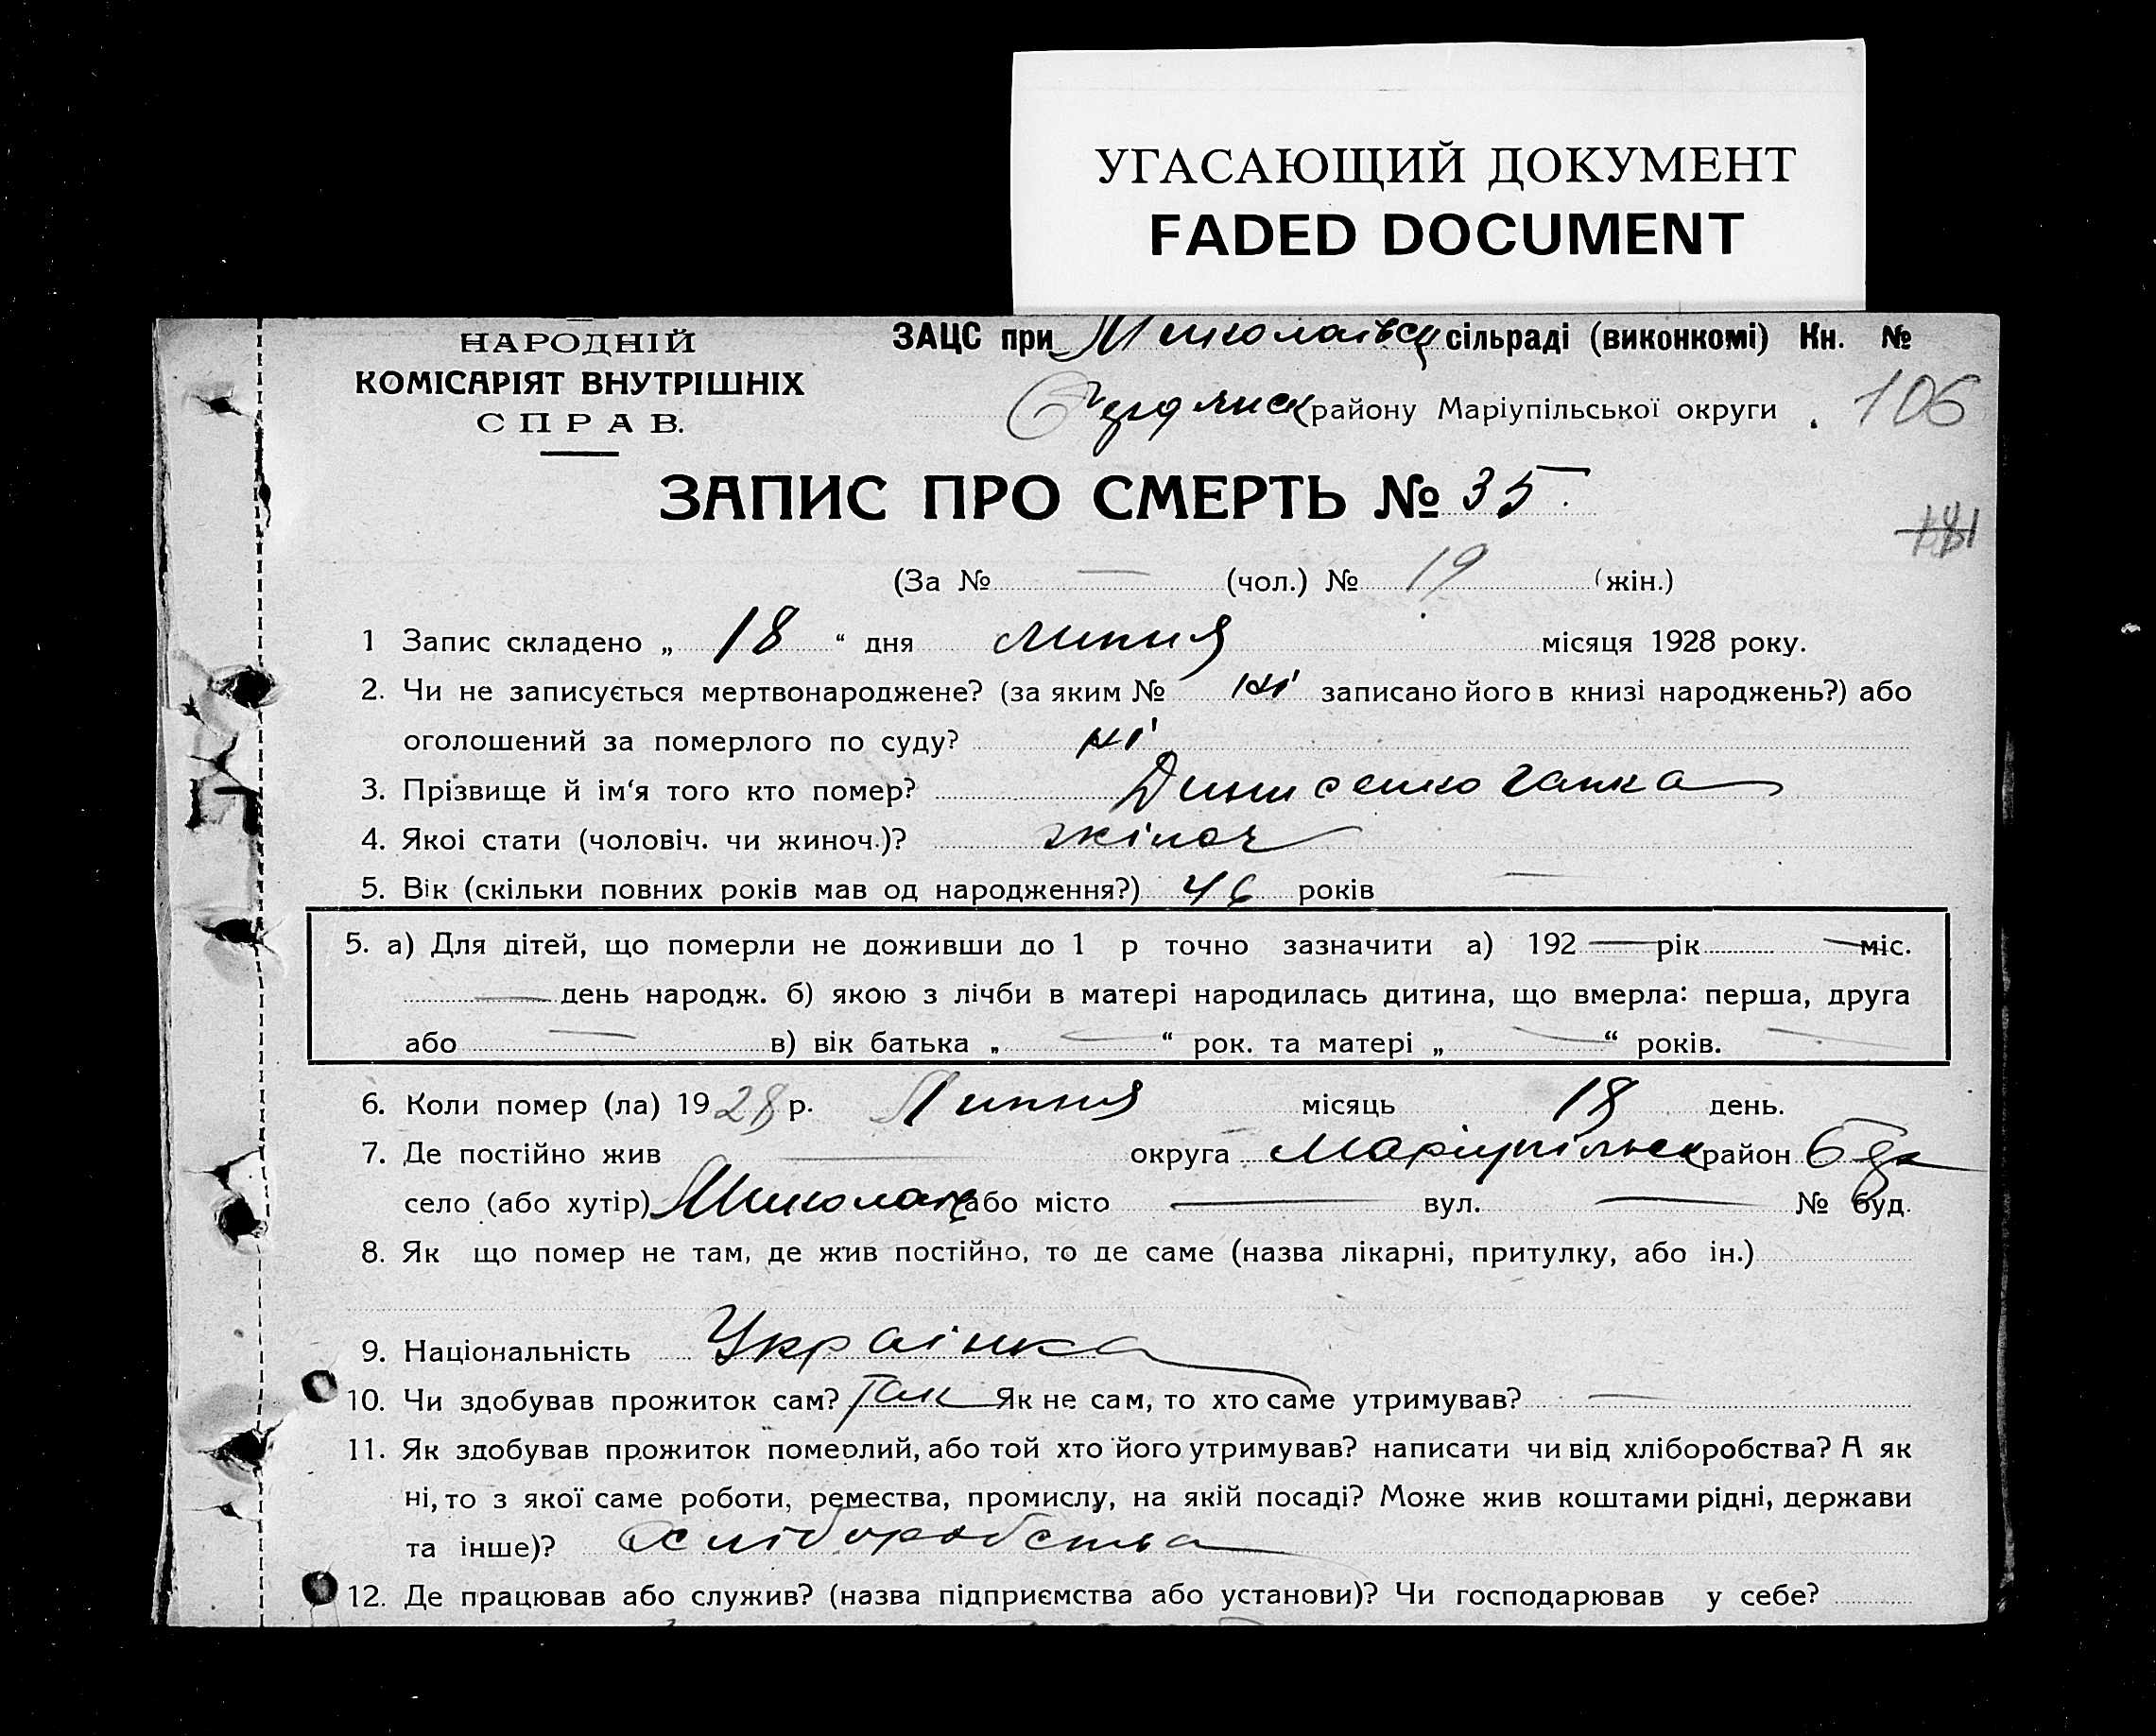 УГАСАЮЩИЙ ДОКУМЕНТ
FADED DOCUMENT
НАРОДНІЙ
КОМІСАРІЯТ ВНУТРІШНІХ
СПРАВ.
ЗАЦС при Миколаївськ сільраді (виконкомі) Кн. №
району Маріупільської округи 106
ЗАПИС ПРО СМЕРТЬ № 35.
181
(За № — (чол.) № 19 (жін.)
1 Запис складено „ 18 “ дня липня місяця 1928 року.
2. Чи не записується мертвонароджене? (за яким № ні записано його в книзі народжень?) або
оголошений за померлого по суду? ні
3. Прізвище й ім‘я того кто помер? Динисенко Ганка
4. Якоі стати (чоловіч. чи жиноч.)? жіноч
5. Вік (скільки повних років мав од народження?) 46 років —
5. а) Для дітей, що померли не доживши до 1 р точно зазначити а) 192 — рік — міс.
— день народж. б) якою з лічби в матері народилась дитина, що вмерла: перша, друга
або — в) вік батька „ — “ рок. та матері „ — “ років. —
6. Коли помер (ла) 1928 р. Липня місяць 18 день.
7. Де постійно жив — округа Маріупільськ район
село (або хутір) або місто — вул. — № буд.
8. Як що помер не там, де жив постійно, то де саме (назва лікарні, притулку, або ін.)
9. Національність Українка
10. Чи здобував прожиток сам? Так Як не сам, то хто саме утримував? —
11. Як здобував прожиток померлий, або той хто його утримував? написати чи від хліборобства? А як
ні, то з якої саме роботи, ремества, промислу, на якій посаді? Може жив коштами рідні, держави
та інше)? Хліборобства
12. Де працював або служив? (назва підприємства або установи)? Чи господарював у себе?